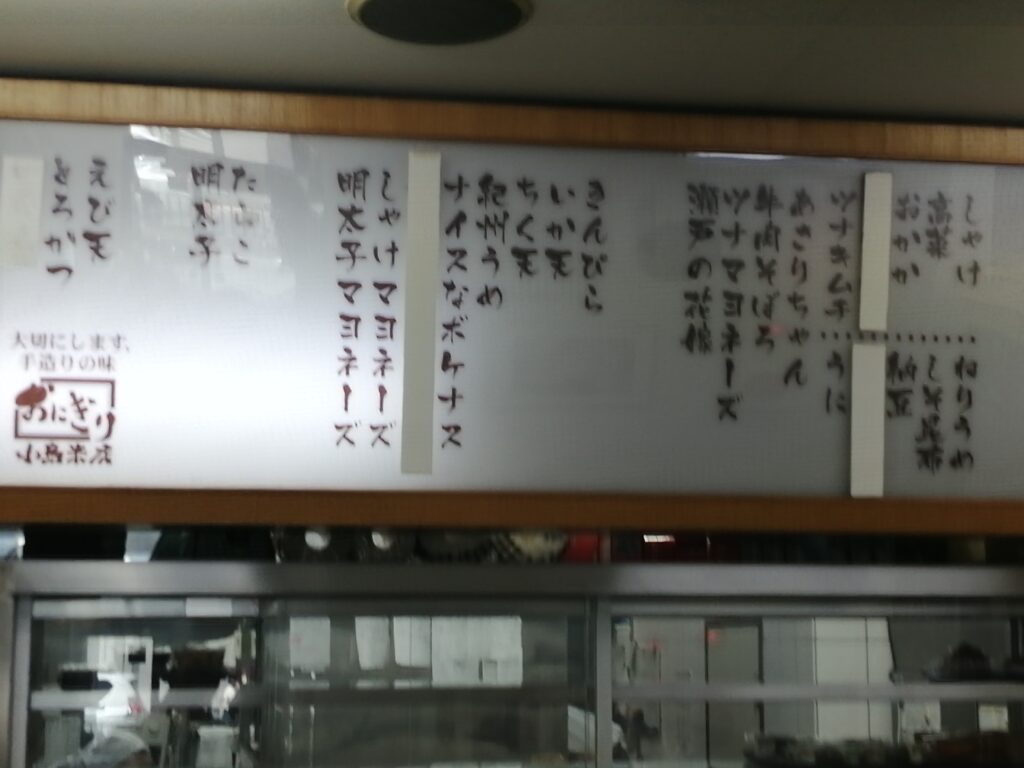 しゃけ
高菜
おかか
ねりうめ
しそ昆布
納豆
ツナキムチ
うに
あさりちゃん
牛肉そぼろ
ツナマヨネーズ
瀬戸の花嫁
きんぴら
いか天
ちく天
紀州うめ
ナイスなボケナス
しゃけマヨネーズ
明太子マヨネーズ
たらこ
明太子
えび天
とろかつ
大切にします、
手造りの味
おにぎり
小島米店